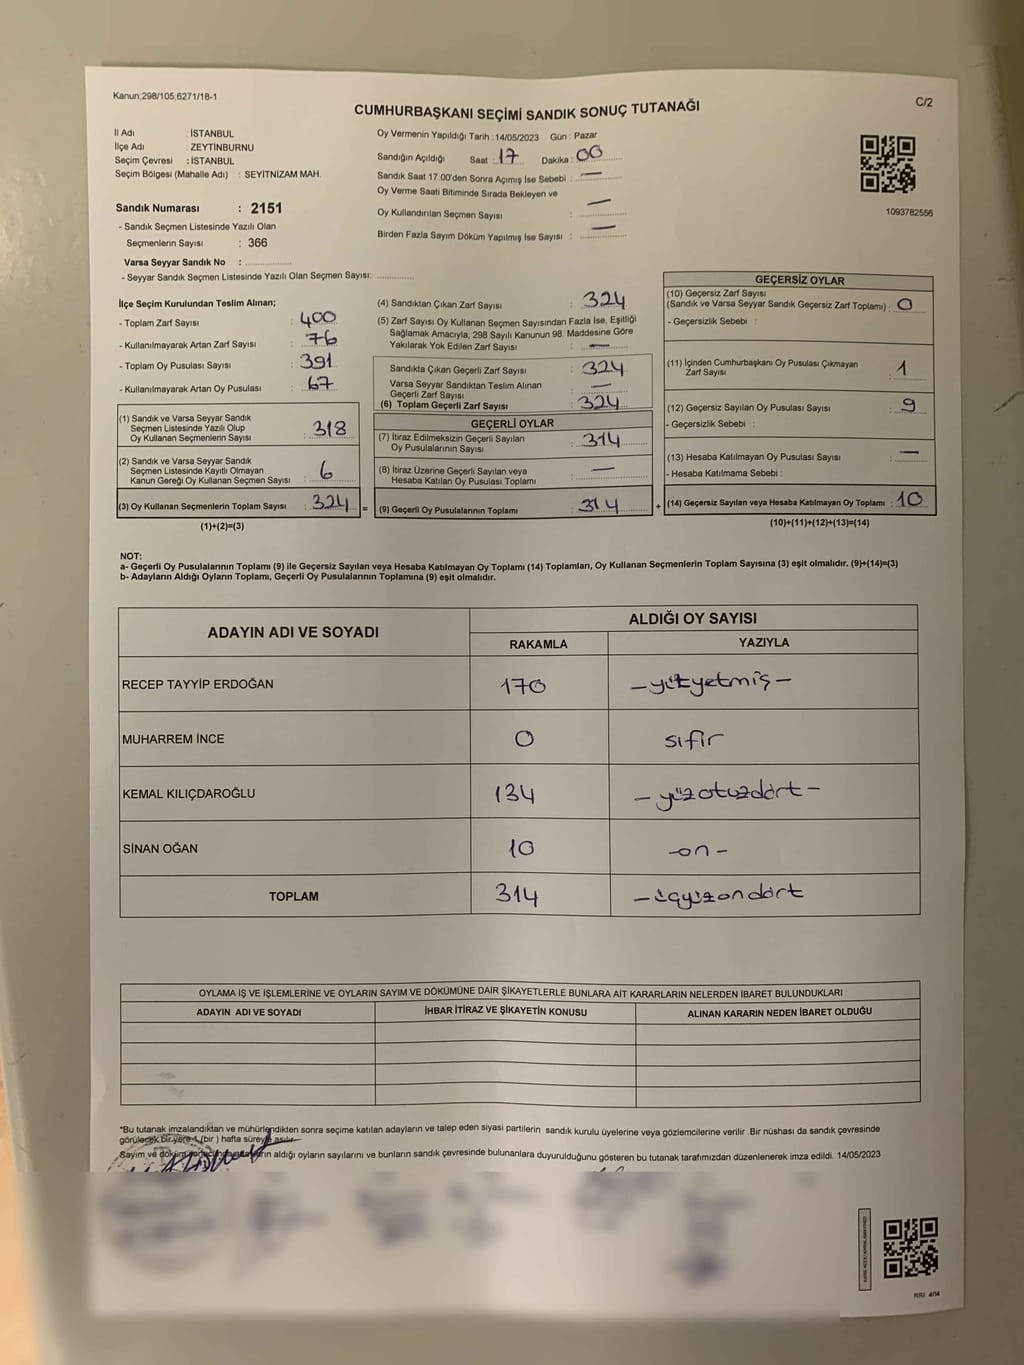 Kanun;298/105,6271/18-1
CUMHURBAŞKANI SEÇİMİ SANDIK SONUÇ TUTANAĞI
C/2
İl Adı : İSTANBUL
İlçe Adı : ZEYTİNBURNU
Seçim Çevresi : İSTANBUL
Seçim Bölgesi (Mahalle Adı) : SEYİTNİZAM MAH.
Sandık Numarası : 2151
- Sandık Seçmen Listesinde Yazılı Olan
Seçmenlerin Sayısı : 366
Varsa Seyyar Sandık No :
- Seyyar Sandık Seçmen Listesinde Yazılı Olan Seçmen Sayısı:
Oy Vermenin Yapıldığı Tarih : 14/05/2023 Gün : Pazar
Sandığın Açıldığı Saat : 17 Dakika : 00
Sandık Saat 17:00'den Sonra Açımış İse Sebebi : —
Oy Verme Saati Bitiminde Sırada Bekleyen ve
Oy Kullandırılan Seçmen Sayısı : —
Birden Fazla Sayım Döküm Yapılmış İse Sayısı : —
1093782556
İlçe Seçim Kurulundan Teslim Alınan;
- Toplam Zarf Sayısı : 400
- Kullanılmayarak Artan Zarf Sayısı : 76
- Toplam Oy Pusulası Sayısı : 391
- Kullanılmayarak Artan Oy Pusulası : 67
(1) Sandık ve Varsa Seyyar Sandık
Seçmen Listesinde Yazılı Olup
Oy Kullanan Seçmenlerin Sayısı : 318
(2) Sandık ve Varsa Seyyar Sandık
Seçmen Listesinde Kayıtlı Olmayan
Kanun Gereği Oy Kullanan Seçmen Sayısı : 6
(3) Oy Kullanan Seçmenlerin Toplam Sayısı : 324 =
(1)+(2)=(3)
(4) Sandıktan Çıkan Zarf Sayısı : 324
(5) Zarf Sayısı Oy Kullanan Seçmen Sayısından Fazla İse, Eşitliği
Sağlamak Amacıyla, 298 Sayılı Kanunun 98. Maddesine Göre
Yakılarak Yok Edilen Zarf Sayısı : —
Sandıkta Çıkan Geçerli Zarf Sayısı : 324
Varsa Seyyar Sandıktan Teslim Alınan
Geçerli Zarf Sayısı : —
(6) Toplam Geçerli Zarf Sayısı : 324
GEÇERLİ OYLAR
(7) İtiraz Edilmeksizin Geçerli Sayılan
Oy Pusulalarının Sayısı : 314
(8) İtiraz Üzerine Geçerli Sayılan veya
Hesaba Katılan Oy Pusulası Toplamı : —
(9) Geçerli Oy Pusulalarının Toplamı : 314 +
GEÇERSİZ OYLAR
(10) Geçersiz Zarf Sayısı
(Sandık ve Varsa Seyyar Sandık Geçersiz Zarf Toplamı) : 0
- Geçersizlik Sebebi :
(11) İçinden Cumhurbaşkanı Oy Pusulası Çıkmayan
Zarf Sayısı : 1
(12) Geçersiz Sayılan Oy Pusulası Sayısı : 9
- Geçersizlik Sebebi :
(13) Hesaba Katılmayan Oy Pusulası Sayısı : —
- Hesaba Katılmama Sebebi :
(14) Geçersiz Sayılan veya Hesaba Katılmayan Oy Toplamı : 10
(10)+(11)+(12)+(13)=(14)
NOT:
a- Geçerli Oy Pusulalarının Toplamı (9) ile Geçersiz Sayılan veya Hesaba Katılmayan Oy Toplamı (14) Toplamları, Oy Kullanan Seçmenlerin Toplam Sayısına (3) eşit olmalıdır. (9)+(14)=(3)
b- Adayların Aldığı Oyların Toplamı, Geçerli Oy Pusulalarının Toplamına (9) eşit olmalıdır.
ADAYIN ADI VE SOYADI
ALDIĞI OY SAYISI
RAKAMLA
YAZIYLA
RECEP TAYYİP ERDOĞAN 170 -yüzyetmiş-
MUHARREM İNCE 0 sıfır
KEMAL KILIÇDAROĞLU 134 -yüzotuzdört-
SİNAN OĞAN 10 -on-
TOPLAM 314 -üçyüzondört
OYLAMA İŞ VE İŞLEMLERİNE VE OYLARIN SAYIM VE DÖKÜMÜNE DAİR ŞİKAYETLERLE BUNLARA AİT KARARLARIN NELERDEN İBARET BULUNDUKLARI
ADAYIN ADI VE SOYADI
İHBAR İTİRAZ VE ŞİKAYETİN KONUSU
ALINAN KARARIN NEDEN İBARET OLDUĞU
"Bu tutanak imzalandıktan ve mühürlendikten sonra seçime katılan adayların ve talep eden siyasi partilerin sandık kurulu üyelerine veya gözlemcilerine verilir .Bir nüshası da sandık çevresinde
görülecek bir yere 1 (bir ) hafta süreyle asılır.
Sayım ve döküm aldığı oyların sayılarını ve bunların sandık çevresinde bulunanlara duyurulduğunu gösteren bu tutanak tarafımızdan düzenlenerek imza edildi. 14/05/2023